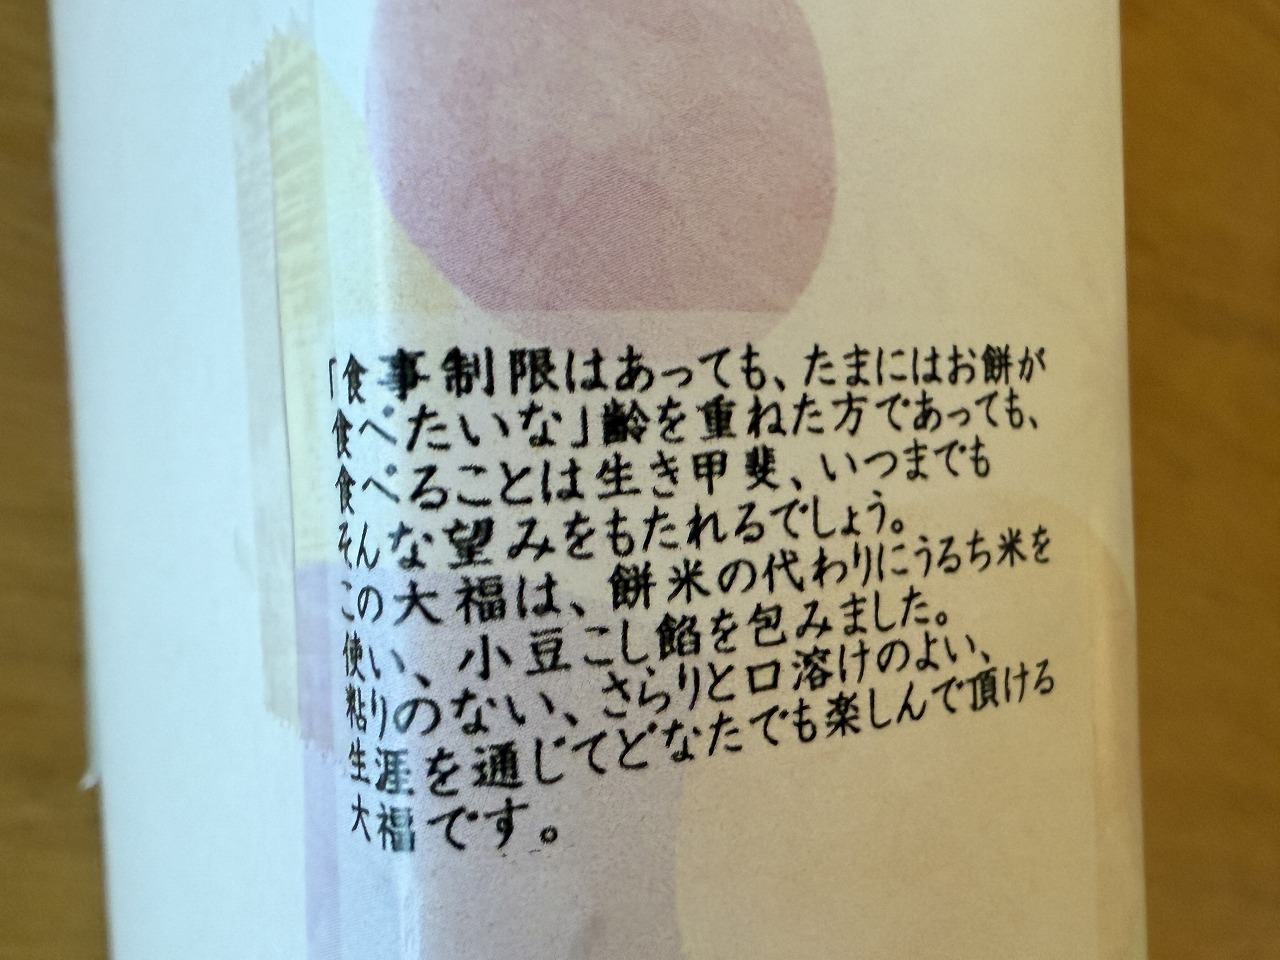 「食事制限はあっても、たまにはお餅が
食べたいな」齢を重ねた方であっても、
食べることは生き甲斐、いつまでも
そんな望みをもたれるでしょう。
この大福は、餅米の代わりにうるち米を
使い、小豆こし餡を包みました。
粘りのない、さらりと口溶けのよい、
生涯を通じてどなたでも楽しんで頂ける
大福です。